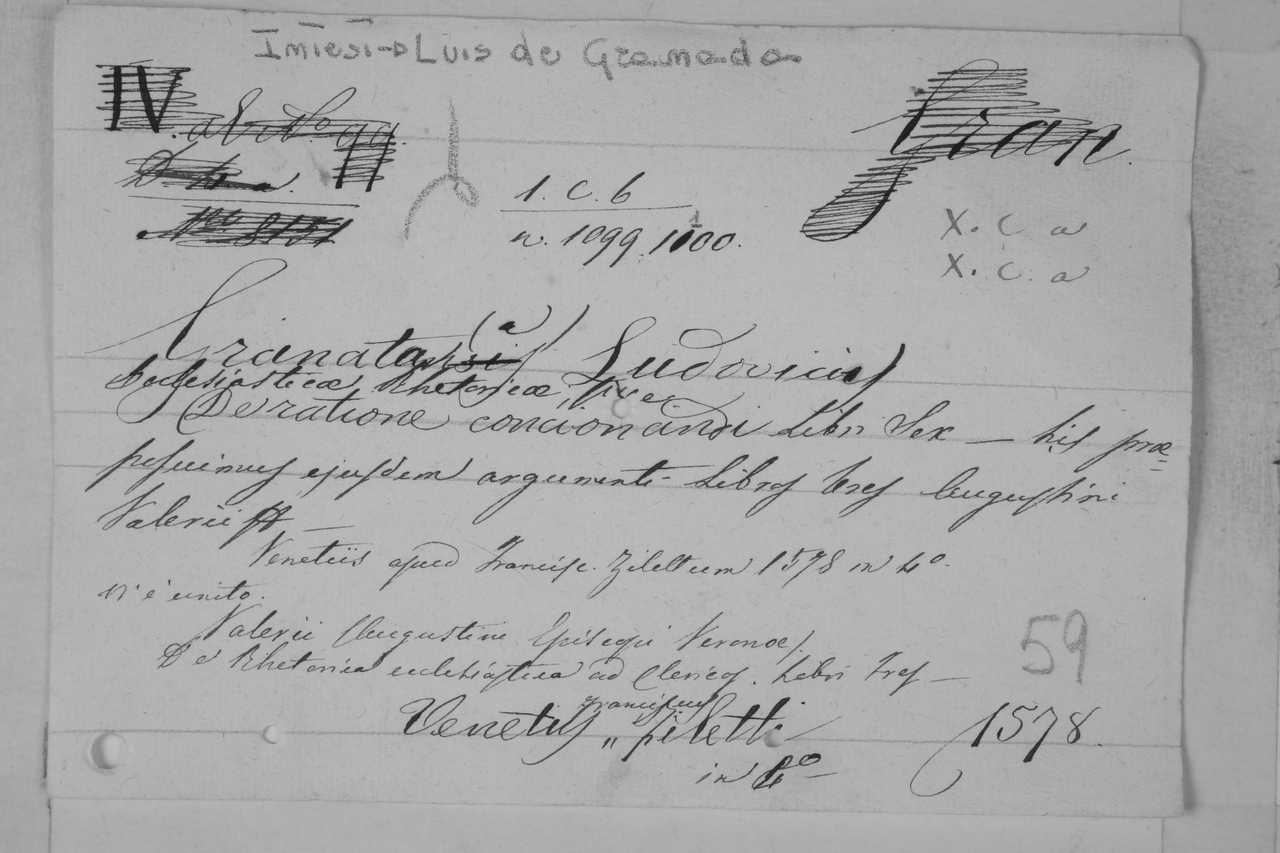 Luis de Granada
IV. ab No 99
Gran.
1. C. 6
n. 1099. 1100.
X. C. a
X. C. a
Granata (a) Ludovicus
Ecclesiasticæ Rhetoricæ, sive
De ratione concionandi Libri Sex — his præ=
posuimus ejusdem argumenti Libros tres Augustini
Valerii —
Venetiis apud Francisc. Zilettum 1578 in 4o.
Vi è unito.
Valerii Augustini Episcopi Veronæ
De Rhetorica ecclesiastica ad Clericos. Libri Tres —
Franciscus
Venetiis „ Ziletti 1578.
in 4o —
59